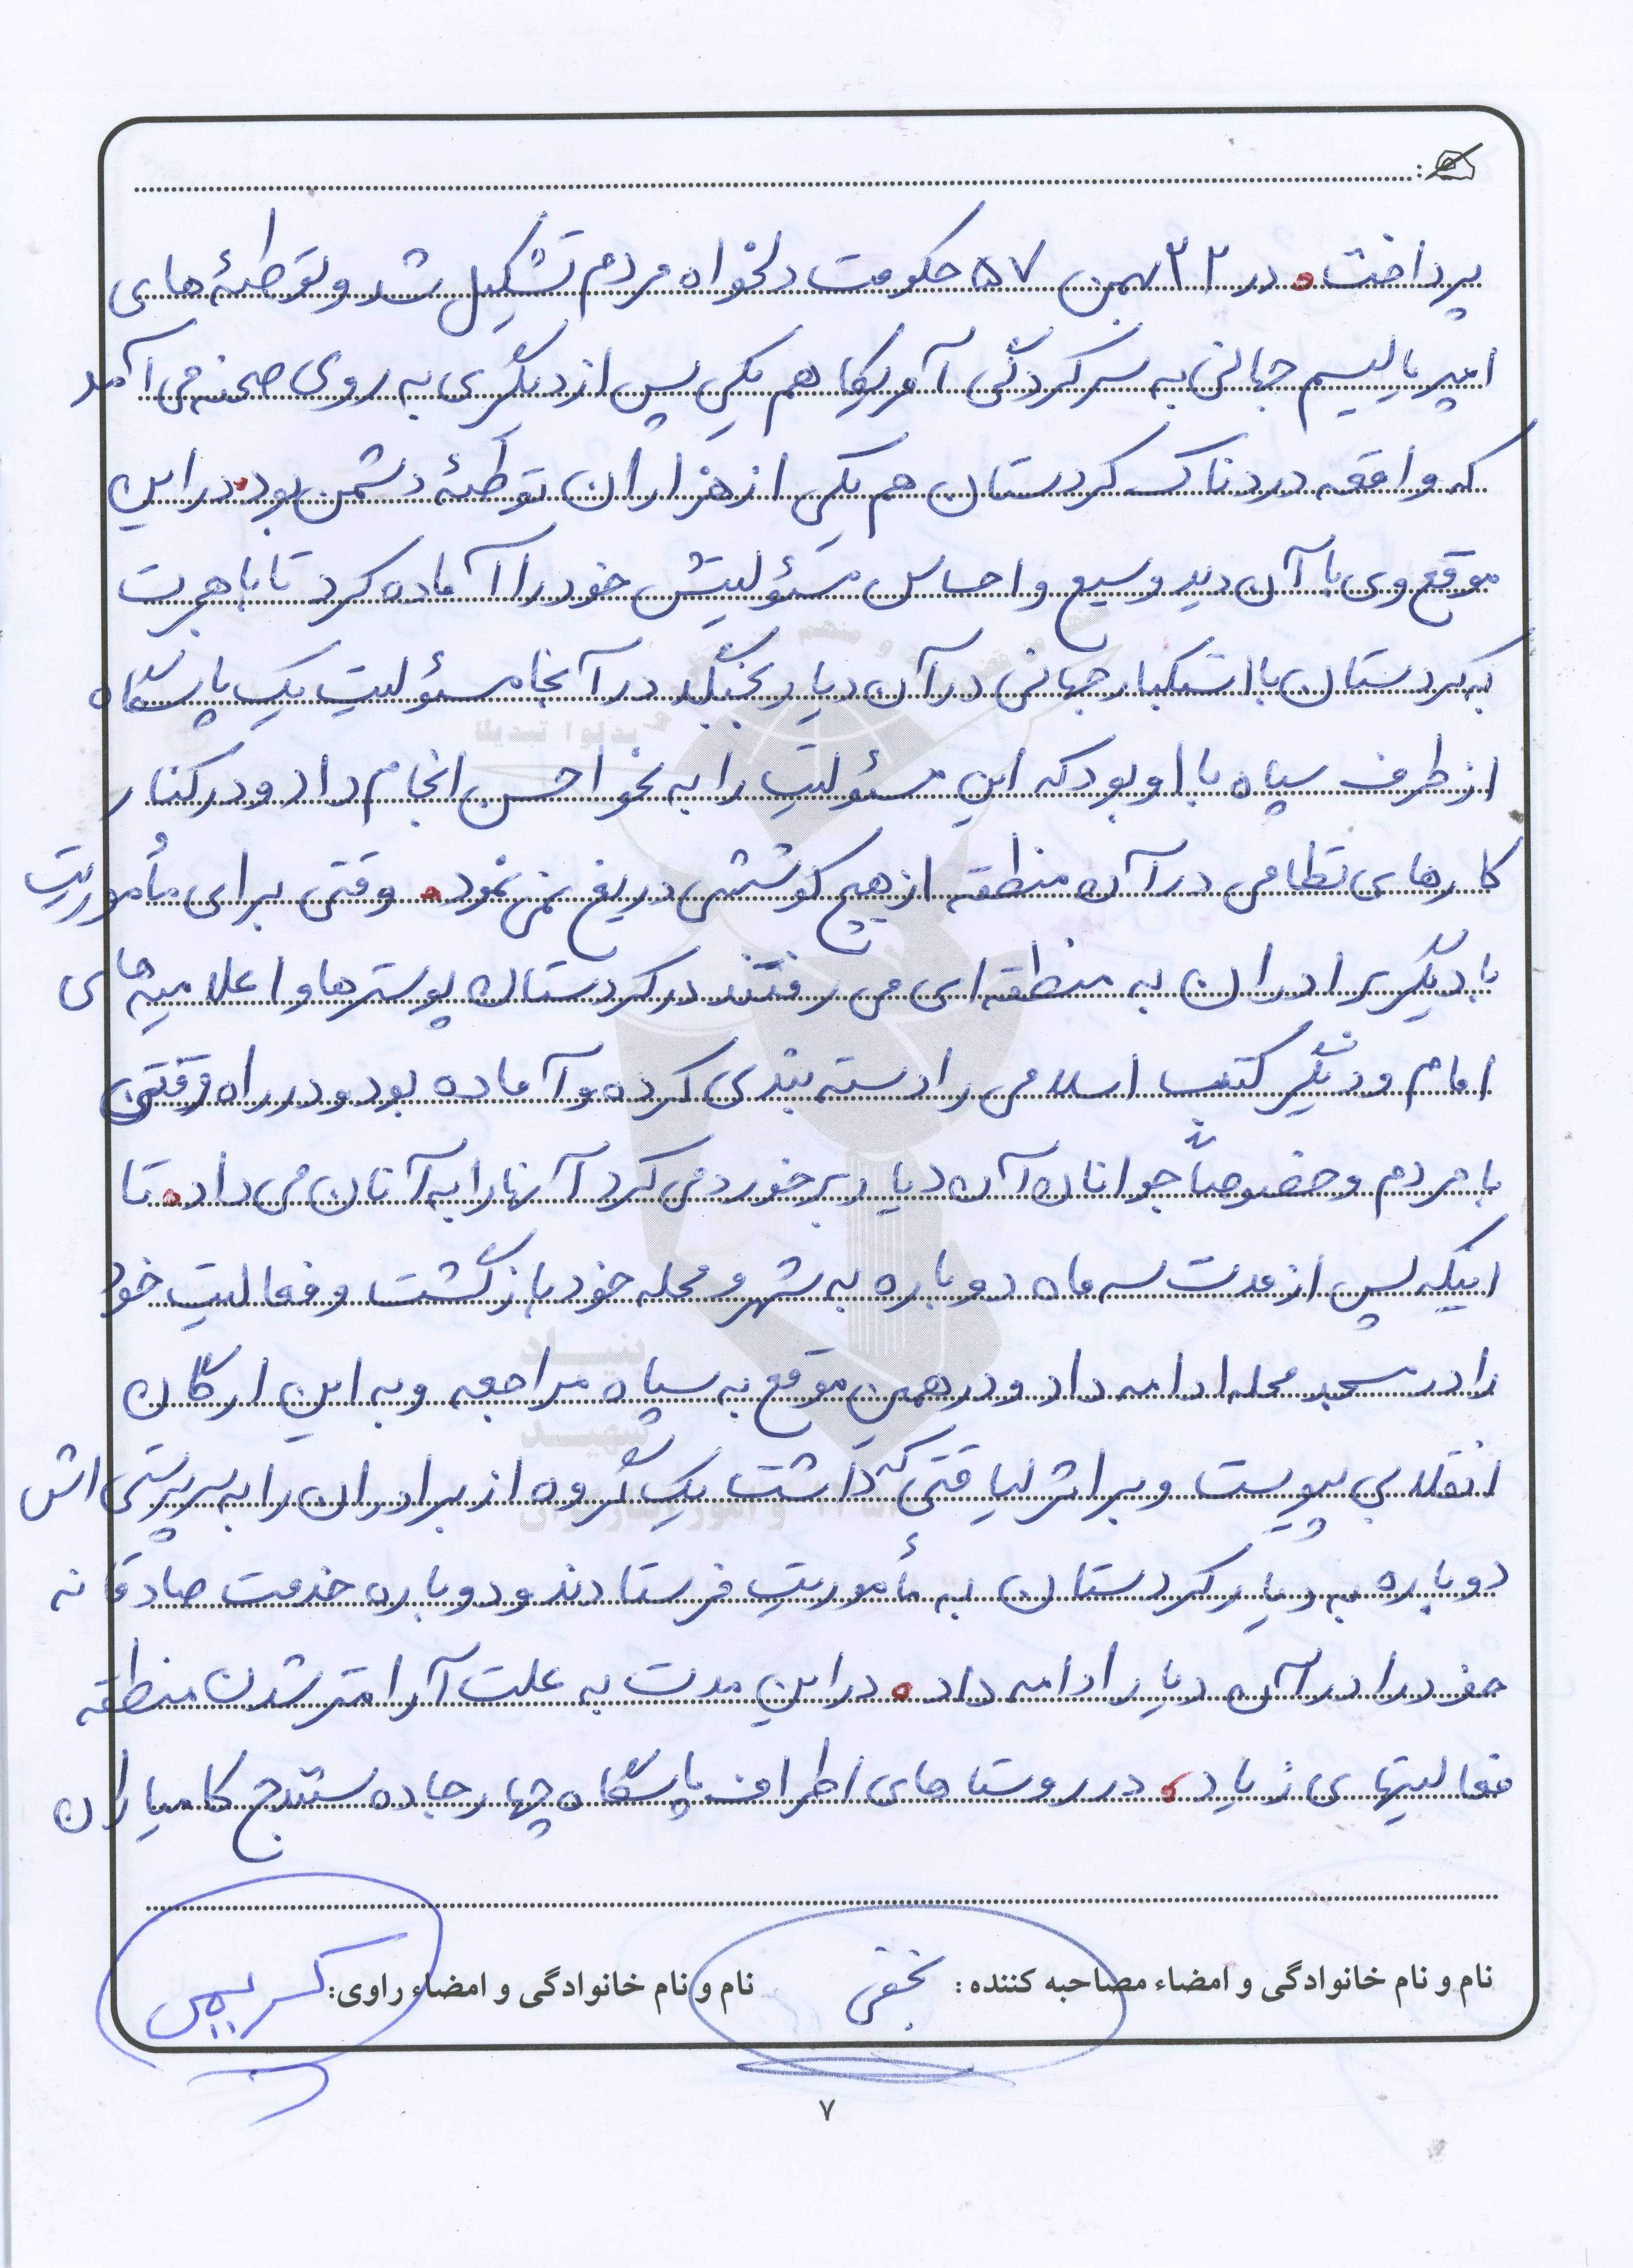 پرداخت. در ۲۲ بهمن ۵۷ حکومت دلخواه مردم تشکیل شد و توطئه های
امپریالیسم جهانی به سرکردگی آمریکا هم یکی پس از دیگری به روی صحنه می آمد
که واقعه دردناک کردستان هم یکی از هزاران توطئه دشمن بود. در این
موقع وی با آن دید وسیع و احساس مسئولیتش خود را آماده کرد تا با هجرت
به کردستان با استکبار جهانی در آن دیار بجنگد در آنجا مسئولیت یک پاسگاه
از طرف سپاه با او بود که این مسئولیت را به نحو احسن انجام داد و در کنار
کارهای نظامی در آن منطقه از هیچ کوششی دریغ نمی نمود. وقتی برای مأموریت
با دیگر برادران به منطقه ای می رفتند در کردستان پوسترها و اعلامیه های
امام و دیگر کتب اسلامی را دسته بندی کرده و آماده بود و در راه وقتی
با مردم و خصوصاً جوانان آن دیار برخورد می کرد آنها را به آنان می داد. تا
اینکه پس از مدت سه ماه دوباره به شهر و محله خود بازگشت و فعالیت خود
را در مسجد محله ادامه داد و در همین موقع به سپاه مراجعه و به این ارگان
انقلابی پیوست و بر اثر لیاقتی که داشت یک گروه از برادران را به سرپرستی اش
دوباره به دیار کردستان به مأموریت فرستادند و دوباره خدمت صادقانه
خود را در آن دیار ادامه داد. در این مدت به علت آرامتر شدن منطقه
فعالیتهای زیاد، در روستاهای اطراف پاسگاه چهار جاده سنندج کامیاران
نام و نام خانوادگی و امضاء مصاحبه کننده: نجفی نام و نام خانوادگی و امضاء راوی: کریمی
۷